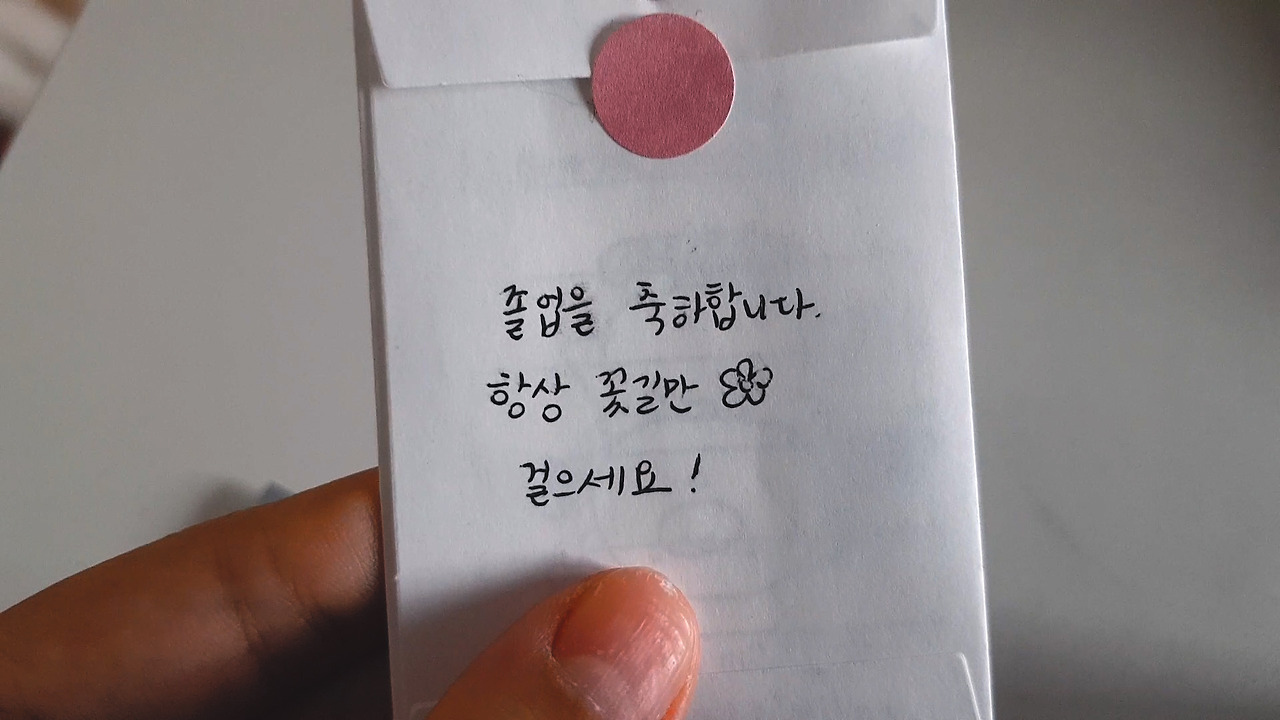 졸업을 축하합니다.
항상 꽃길만
걸으세요!